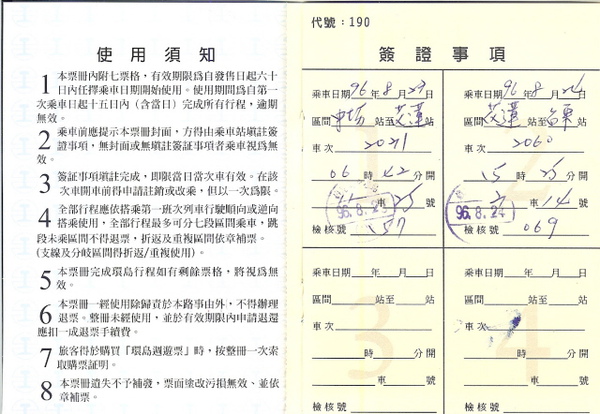 使用須知
1 本票冊內附七票格，有效期限爲自發售日起六十
日內任擇乘車日期開始使用。使用期間爲自第一
次乘車日起十五日內（含當日）完成所有行程，逾期
無效。
2 乘車前應提示本票冊封面，方得由乘車站填註簽
證事項，無封面或無填註簽證事項者乘車視爲無
效。
3 簽證事項填註完成，即限當日當次車有效。在該
次車開車前得申請註銷或改乘，但以一次爲限。
4 全部行程應依搭乘第一班次列車行駛順向或逆向
搭乘使用，全部行程最多可分七段區間乘車，跳
段未乘區間不得退票，折返及重複區間依章補票。
（支線及分岐區間得折返/重複使用）。
5 本票冊完成環島行程如有剩餘票格，將視爲無
效。
6 本票冊一經使用除歸責於本路事由外，不得辦理
退票。整冊未經使用，並於有效期限內申請退還
應扣一成退票手續費。
7 旅客得於購買「環島週遊票」時，按整冊一次索
取購票証明。
8 本票冊遺失不予補發，票面塗改污損無效、並依
章補票。
代號：190
簽證事項
乘車日期96年8月23日
區間 站至 站
車次 2021
06時42分開
車25號
96.8.23
檢核號 157
乘車日期96年8月24日
區間 站至 站
車次 2060
15時25分開
車14號
96.8.24
檢核號 069
乘車日期 年 月 日
區間 站至 站
車次
時 分開
車 號
檢核號
3
乘車日期 年 月 日
區間 站至 站
車次
時 分開
車 號
檢核號
4